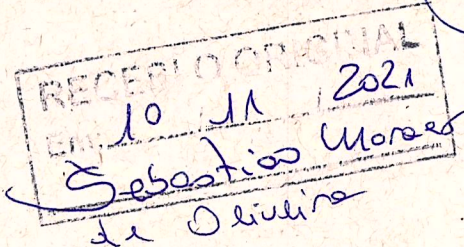 RECEBI O ORIGINAL
EM, 10 / 11 / 2021
Sebastião Moraes
de Oliveira